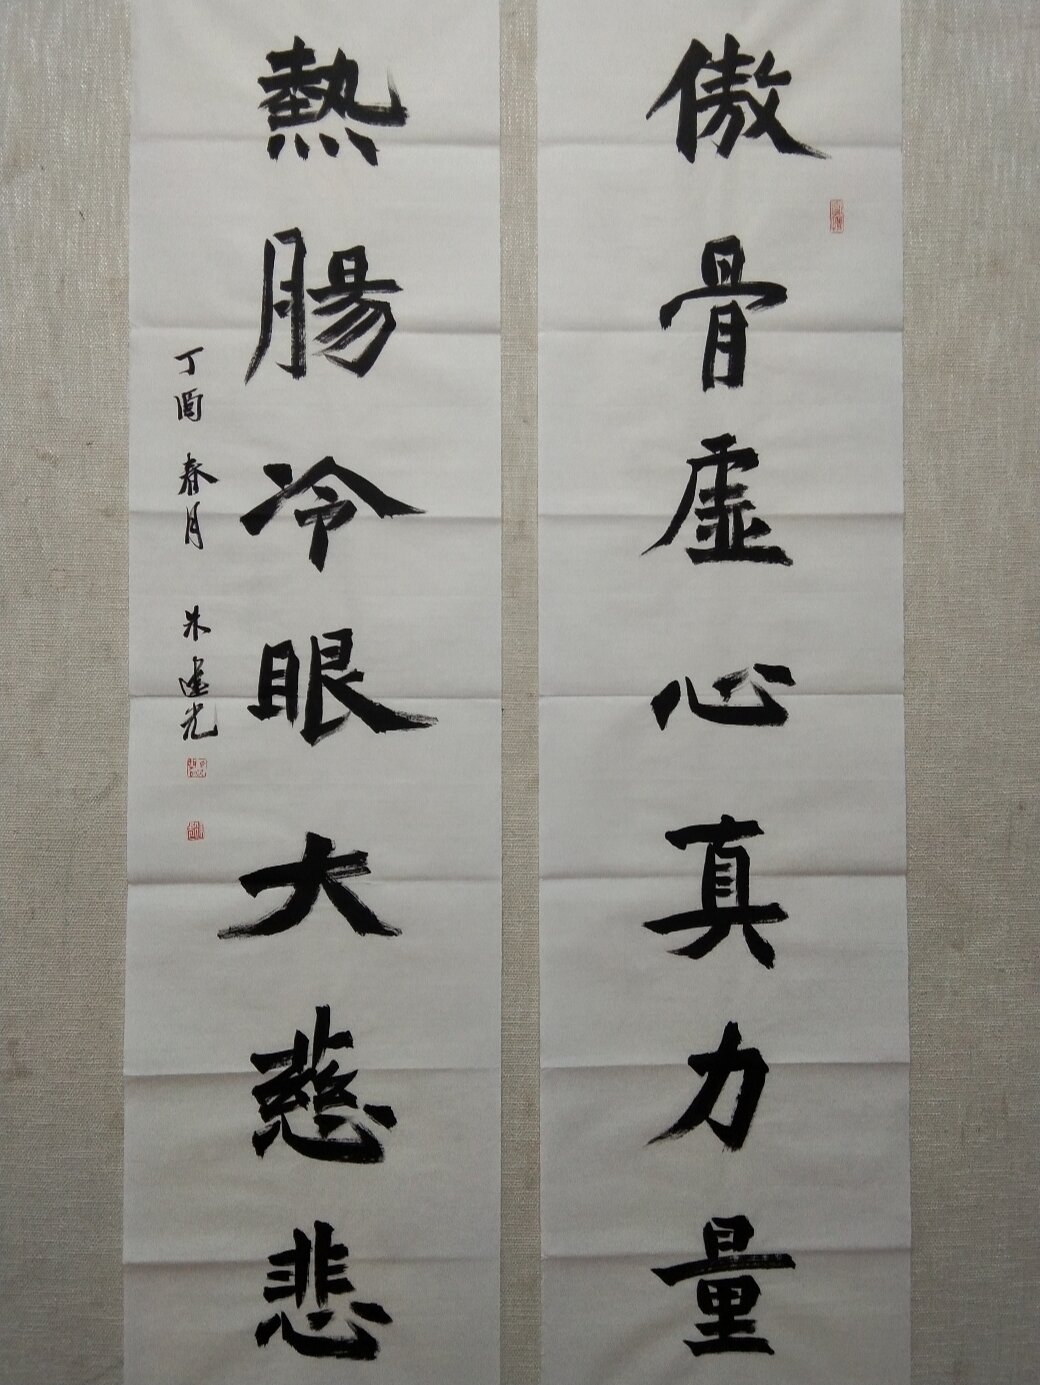 傲骨虚心真力量
熱腸冷眼大慈悲
丁酉 春月 朱建光